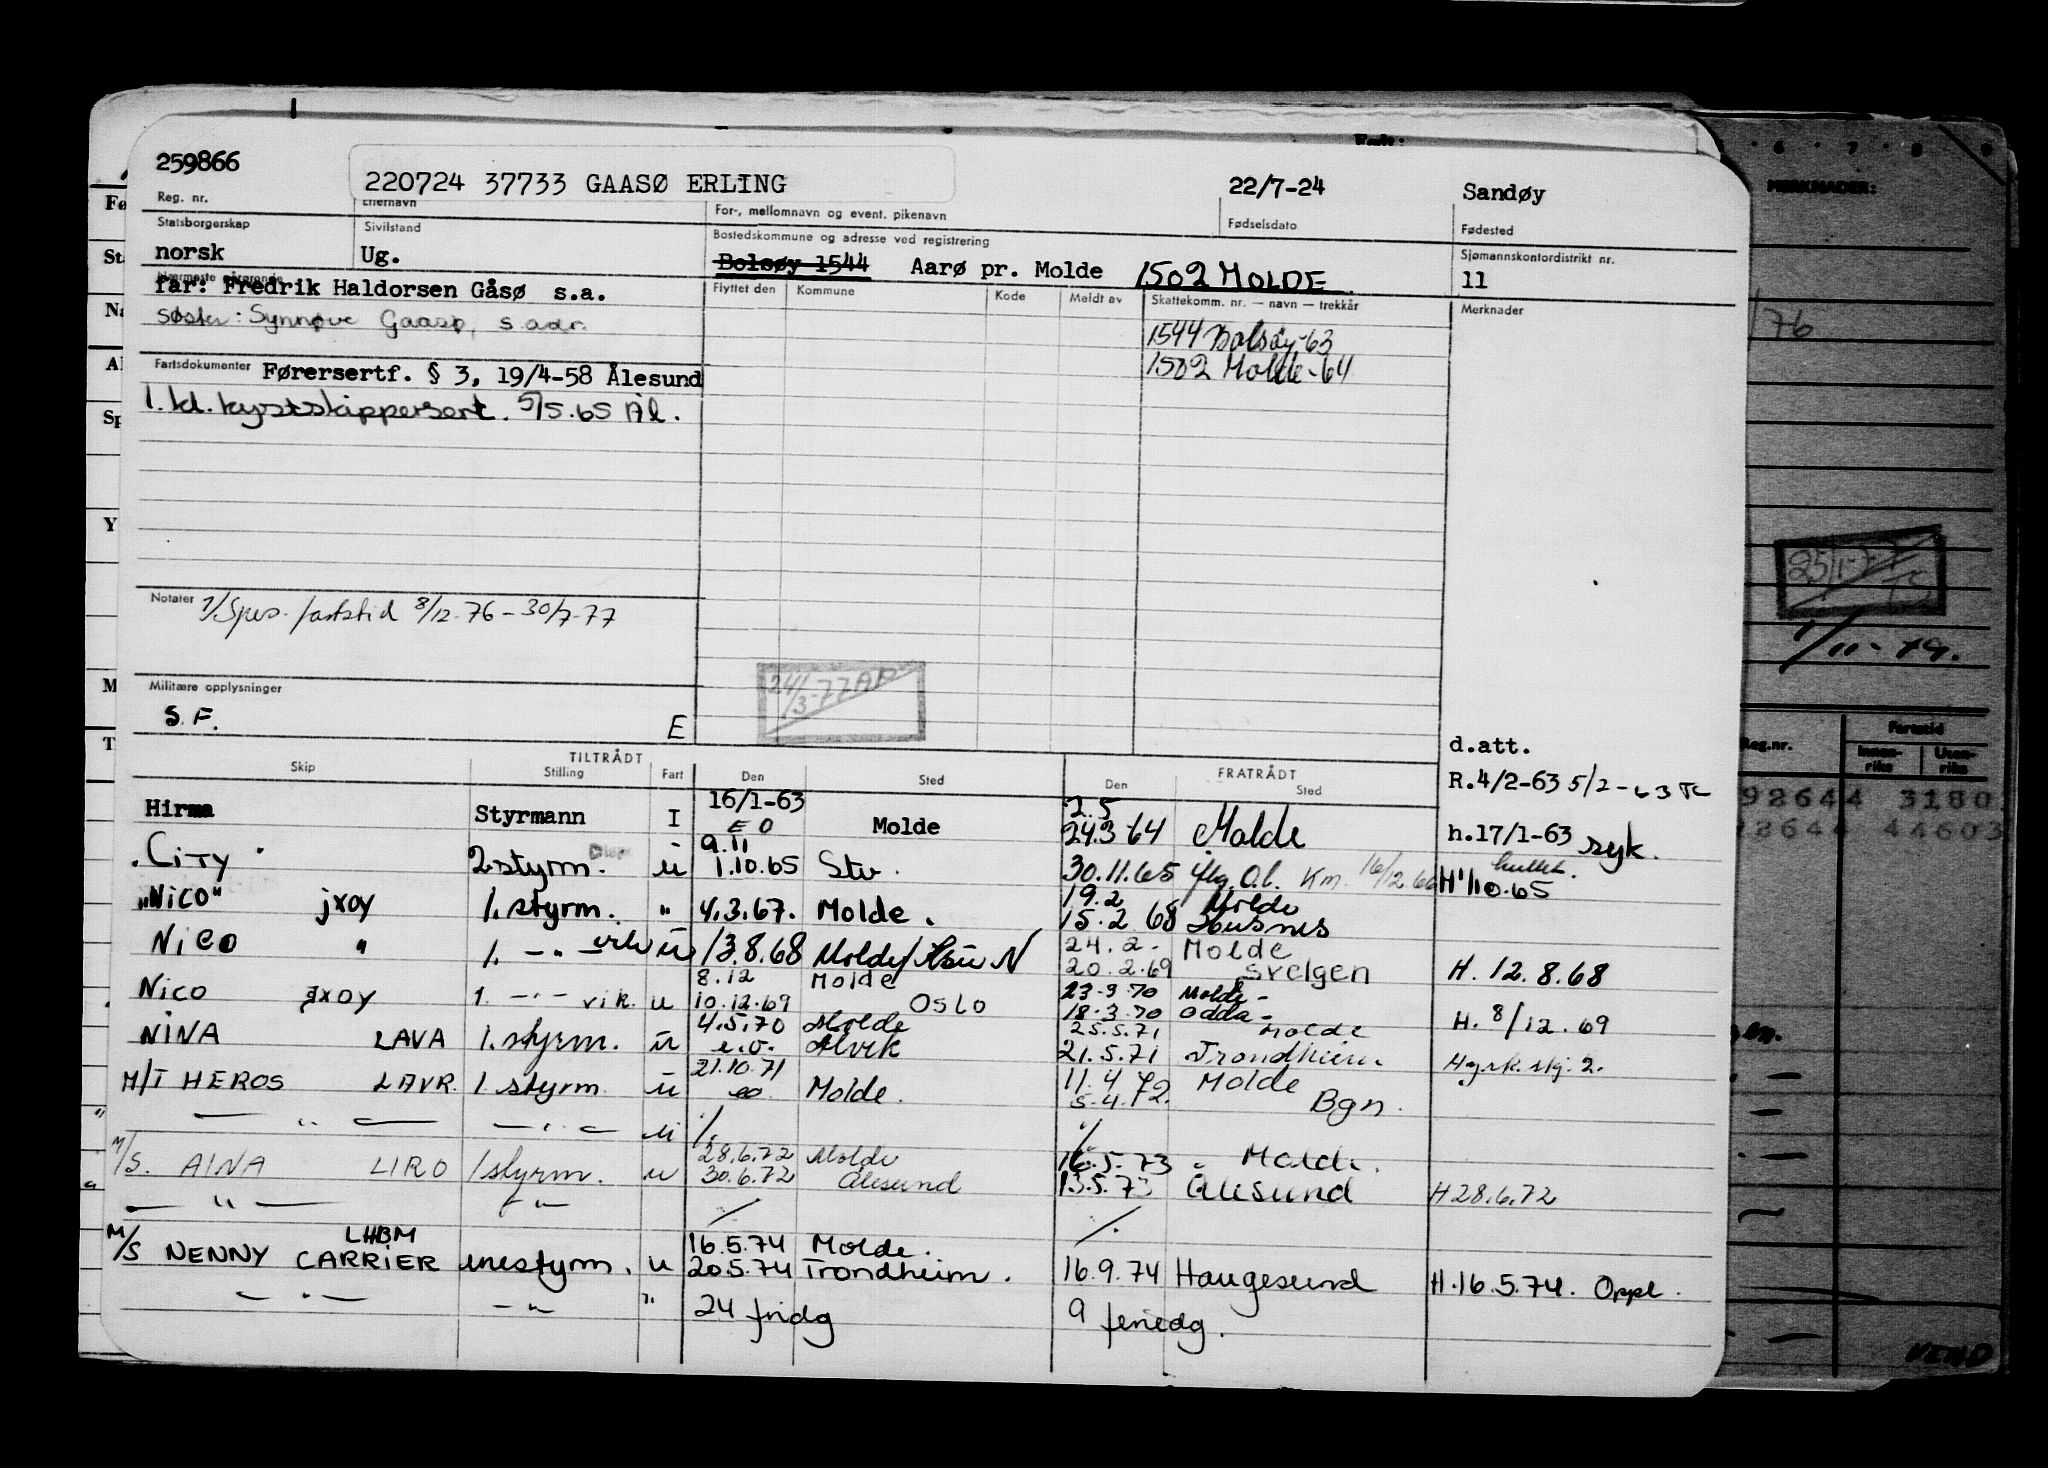 259866
220724 37733 GAASØ ERLING
22/7-24
Sandøy
Reg. nr.
Etternavn
For-, mellomnavn og event. pikenavn
Fødselsdato
Fødested
Statsborgerskap
Sivilstand
Bostedskommune og adresse ved registrering
Sjømannskontordistrikt nr.
norsk
Ug.
Bolsøy 1544 Aarø pr. Molde 1502 MOLDE
11
Nærmeste pårørende
far: Fredrik Haldorsen Gåsø s.a.
Flyttet den
Kommune
Kode
Meldt av
Skattekomm. nr. — navn — trekkår
Merknader
Søster: Synnøve Gaasø, s adr.
1544 Bolsøy-63
1502 Molde-64
Fartsdokumenter Førersertf. § 3, 19/4-58 Ålesund
1. kl. kystskippersert. 5/5.65 Ål.
Notater 1/Spes. fartstid 8/12.76 - 30/7-77
24/3-77
Militære opplysninger
S.F.
E
d.att.
R.4/2-63 5/2-63
Skip
TILTRÅDT
Stilling
Fart
Den
Sted
FRATRÅDT
Den
Sted
Hirma Styrmann I 16/1-63 EO Molde 2.5 24.3 64 Molde h.17/1-63 syk.
"CITY" 2 styrm. u 9.11 1.10.65 Stv. 30.11.65 16/12 66 H 1/10.65
"NICO" JXOY 1. styrm. " 4.3.67. Molde. 19.2 15.2 68 Molde Husnes
NICO " 1. -"- vik u 13.8.68 Molde 24.2- 20.2.69 Molde Svelgen H. 12.8.68
NICO JXOY 1. -"- vik. u 8.12 10.12.69 Molde Oslo 23.3.70 18.3.70 Molde- Odda- H. 8/12.69
NINA LAVA 1. styrm. u 4.5.70 e.o. Molde Alvik 25.5.71 21.5.71 Molde Trondheim.
M/T HEROS LAVR. 1. styrm u 21.10.71 eo Molde. 11.4.72 5.4.72. Molde Bgn.
— " — — " — u /. /.
M/S. AINA LIRO 1 styrm. u 28.6.72 30.6.72 Molde Ålesund 16.5.73 13.5.73 Molde. Ålesund H 28.6.72
— " — — " — / /.
M/S NENNY CARRIER LHBM enestyrm. u 16.5.74 20.5.74 Molde. Trondheim. 16.9.74 Haugesund H.16.5.74. Oppl.
— " — — " — " 24 fridg 9 feriedg.
MERKNADER:
/76
25/1-77
1/11-79.
Reg.nr.
Fartstid
Innen-
riks
Uten-
riks
92644 3180
92644 44603
VEND